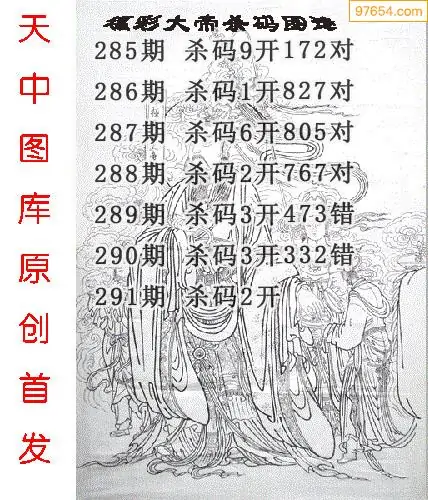 97654.com
福彩大帝杀码图迷
285期 杀码9开172对
286期 杀码1开827对
287期 杀码6开805对
288期 杀码2开767对
289期 杀码3开473错
290期 杀码3开332错
291期 杀码2开
天中图库原创首发